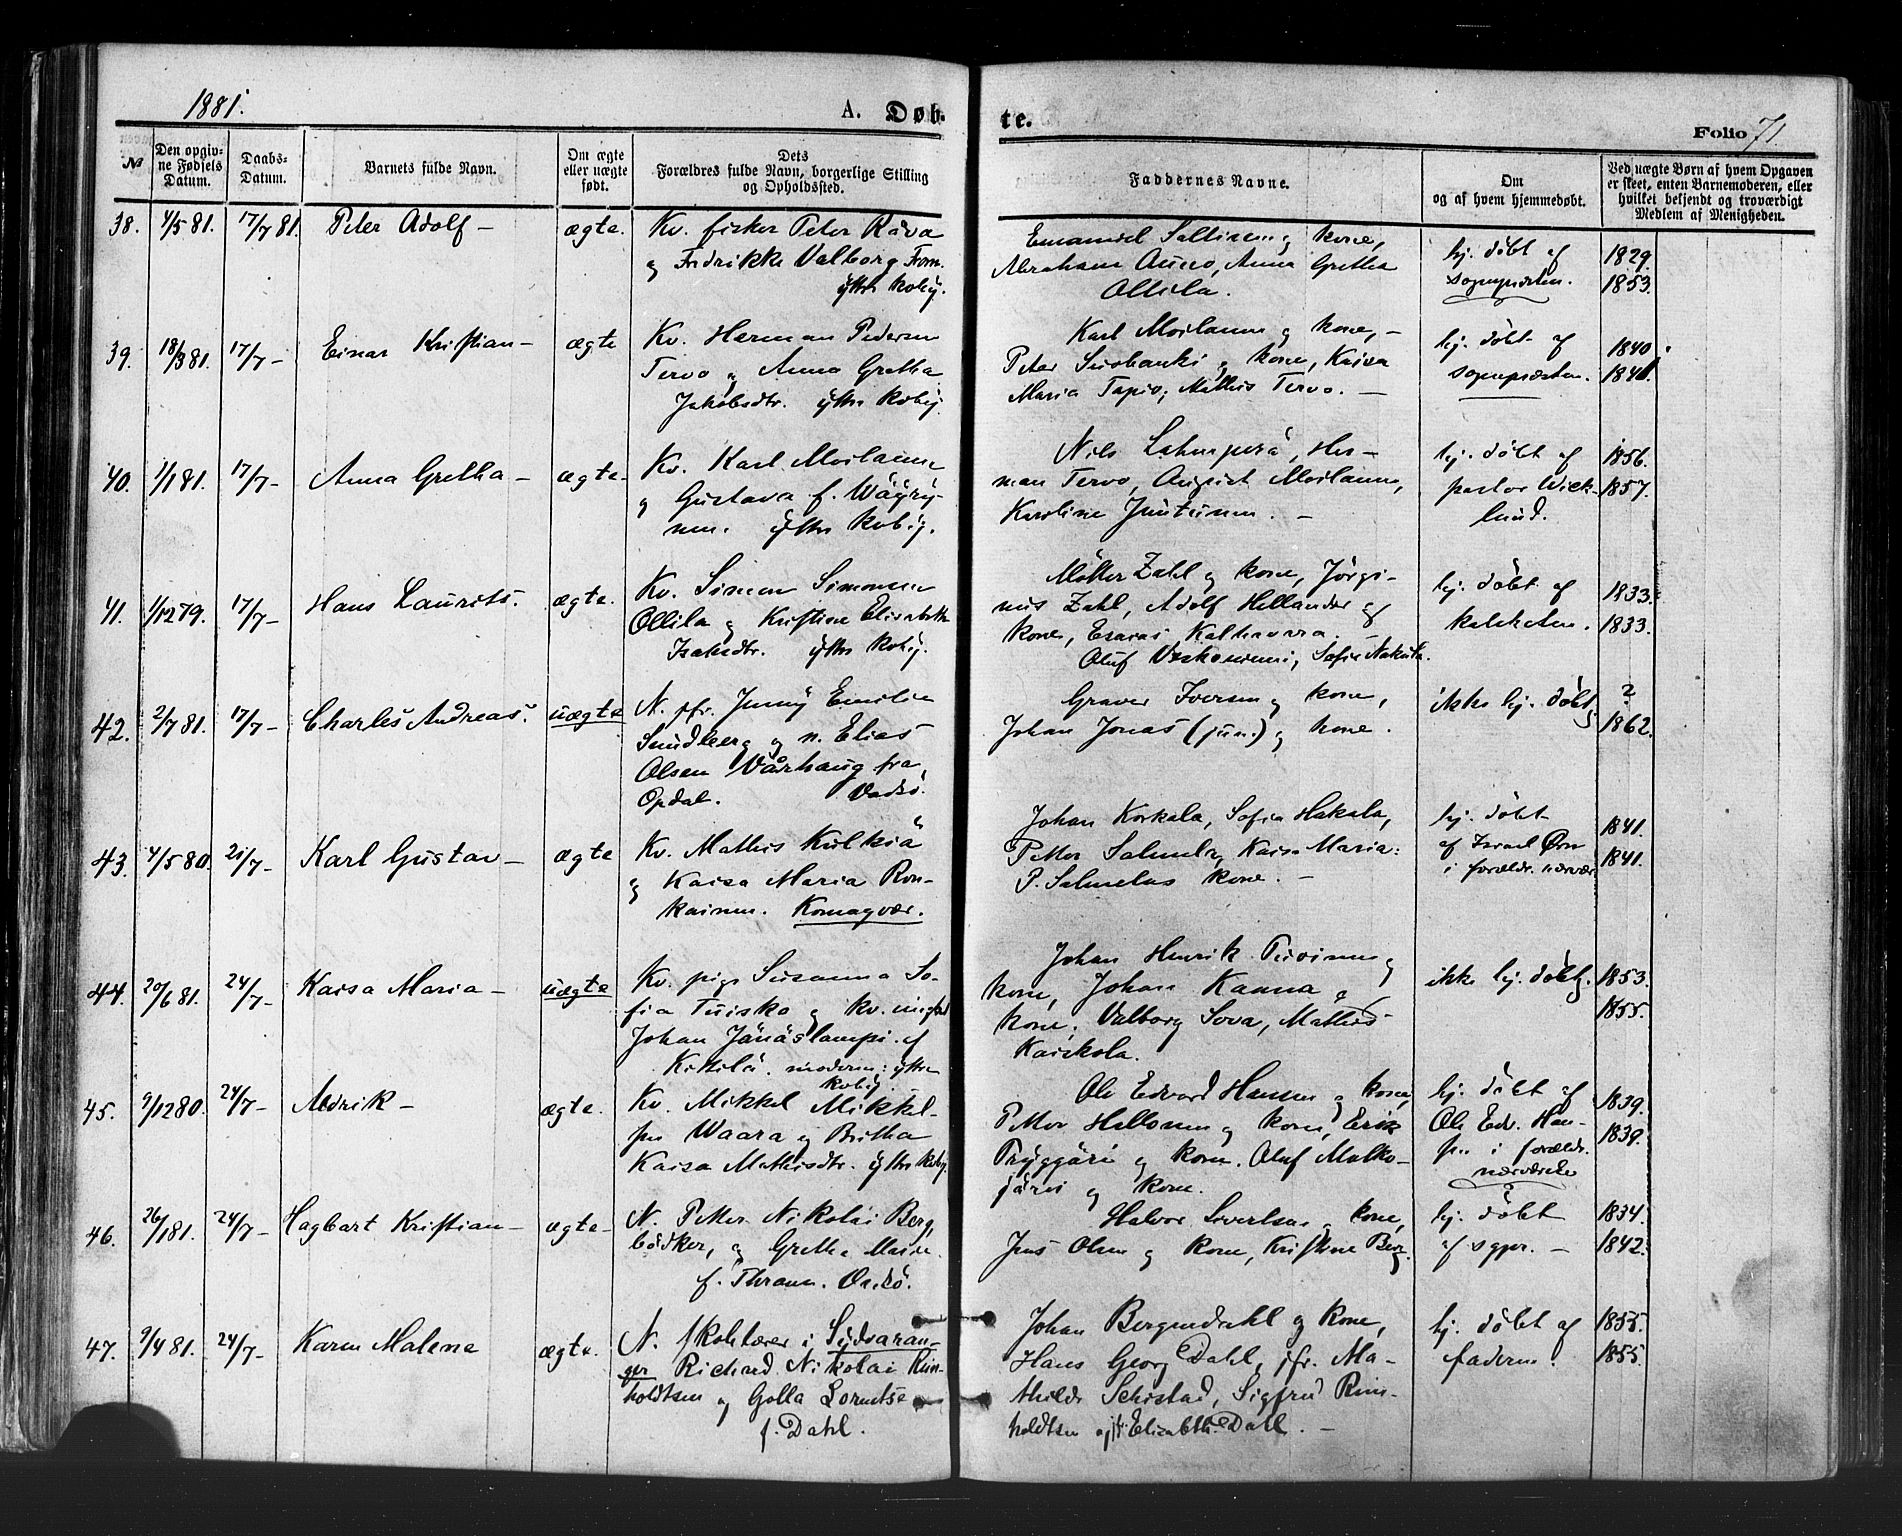 1881.
A. Døb-
te.
Folio 71.
№
Den opgiv-
ne Fødsels
Datum.
Daabs-
Datum.
Barnets fulde Navn.
Om ægte
eller uægte
født.
Dets
Forældres fulde Navn, borgerlige Stilling
og Opholdssted.
Faddernes Navne.
Om
og af hvem hjemmedøbt.
Ved uægte Børn af hvem Opgaven
er skeet, enten Barnemoderen, eller
hvilket bekjendt og troværdigt
Medlem af Menigheden.
38. 4/5 81. 17/7 81. Peter Adolf – ægte.
Kv. fisker Peter Kåva
og Fredrikke Valborg From.
ytre Kobij.
Emanuel og kone,
Abraham Auno, Anna Gretha
Ollila.
hj. døbt af
sognepresten.
1829.
1853.
39. 18/3 81. 17/7 – Einar Kristian – ægte
Kv. Herman Pedersen
Tervo og Anna Gretha
Jakobsdtr. ytre Kobij.
Karl Moilanen og kone, –
Peter og kone, Kaisa
Maria Tapio, Mathis Tervo. –
hj. døbt af
sognepresten.
1840
1841
40. 1/1 81. 17/7 – Anna Gretha – ægte.
Kv. Karl Moilanen
og Gustava f. Wäyry-
nen. ytre Kobij.
Nils Lahenperä, Her-
man Tervo, August Moilanen,
Karoline Juntunen. –
hj. døbt af
pastor Wick-
lund.
1856.
1857.
41. 1/12 79. 17/7 – Hans Laurits. ægte.
Kv. Simon Simonsen
Ollila og Kristine Elisabeth
Isaksdtr. ytre Kobij.
Møller Zahl og kone, Jørgi-
nus Zahl, Adolf Hellander og
kone, Esaias Kalhavara. –
Oluf Sofie
hj. døbt af
kateketen.
1833.
1833.
42. 2/7 81. 17/7 – Charles Andreas. uægte
N. pfr. Jenny Emilie
Sundberg og n. Elias
Olsen Vårhaug fra
Opdal. Vadsø.
Graver Iversen og kone,
Johan Jonas (jun.) og kone.
ikke hj. døbt
?
1862.
43. 4/5 80. 21/7 – Karl Gustav – ægte
Kv. Mathis Kulkiä
og Kaisa Maria Ron-
kainen. Komagvær.
Johan Korkala, Sofia Hakala,
Petter Salmela, Kaisa Maria
P. Salmelas kone. –
hj. døbt
af Israel
i forældr. nærvær
1841.
1841.
44. 20/6 81. 24/7 – Kaisa Maria – uægte
Kv. pige Susanna So-
fia Tuisko og kv. ungkarl
Johan Jänäslampi af
Kittilä. moderen: ytre
Kobij.
Johan Henrik og
kone, Johan Kanna og
kone. Valborg Sova, Mathis
Kaiskola.
ikke hj. døbt.
1853.
1855.
45. 9/12 80. 24/7 – Aldrik – ægte.
Kv. Mikkel Mikkel-
sen Waara og Britha
Kaisa Mathisdtr. ytre Kobij.
Ole Edvard Hansen og kone,
Petter og kone, Erik
og kone. Oluf Malko-
järvi og kone.
hj. døbt af
Ole Edv. Han-
sen i forældr.
nærværelse
1839.
1839.
46. 26/1 81. 24/7 – Hagbart Kristian – ægte –
N. Petter Nikolai Berg,
bødker, og Grethe Marie
f. Thrane. Vadsø.
Halvor Sivertsen og kone,
Jens Olsen og kone, Kristine Berg
hj. døbt
af sgpr. –
1834.
1842.
47. 9/4 81. 24/7 – Karen Malene ægte.
N. skolelærer i Sydvaran-
ger Richard Nikolai Rein-
holdtsen og Golla Lorentse
f. Dahl.
Johan Bergendahl og kone,
Hans Georg Dahl, jfr. Ma-
thilde Schistad, Sigfrid Rein-
holdtsen og jfr. Elizabeth Dahl. –
hj. døbt af
faderen.
1855.
1855.